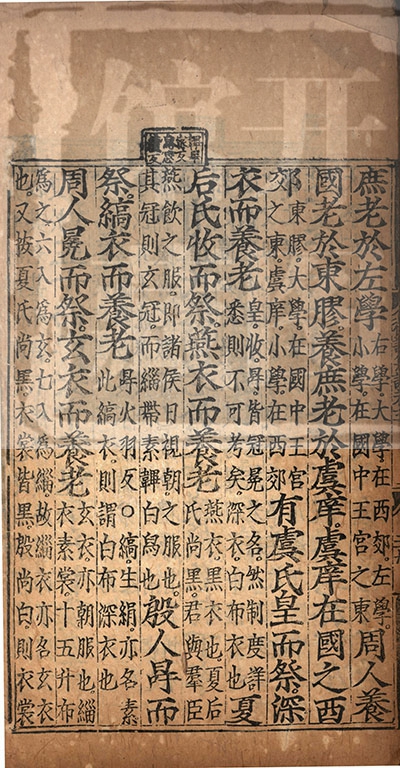 庶老於左學
右學。大學在西郊。左學。
小學在國中王宮之東
周人養
國老於東膠。養庶老於虞庠。虞庠在國之西
郊
東膠。大學在國中王宮
之東。虞庠。小學在西郊
有虞氏皇而祭。深
衣而養老
皇。收。冔。皆冠冕之名。然制度詳
悉則不可考矣。深衣。白布衣也
夏
后氏收而祭。燕衣而養老
燕衣。黑衣也。夏后
氏尚黑。君與羣臣
燕飲之服。即諸侯日視朝之服也。
其冠則玄冠。而緇帶素韠白舄也。
殷人冔而
祭。縞衣而養老
冔火羽反○縞。生絹。亦名素
此縞衣。則謂白布深衣也
周人冕而祭。玄衣而養老
玄衣。亦朝服也。緇
衣素裳。十五升布
爲之。六入爲玄。七入爲緇。故緇衣亦名玄衣
也。又按夏氏尚黑。衣裳皆黑。殷尚白。則衣裳